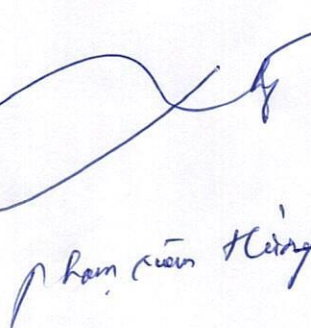 Phạm Xuân Hùng